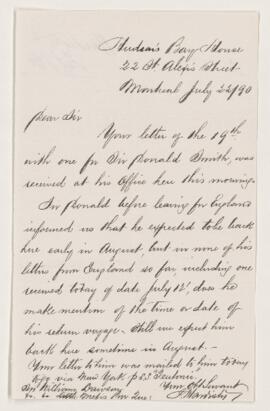 Hudson's Bay House
22 St. Alexis Street
Montreal July 22/90
Dear Sir
Your letter of the 19th
with one for Sir Donald Smith, was
received at his Office here this morning.
Sir Donald before leaving for England
informed us that he expected to be back
here early in August, but in none of his
letters from England so far, including one
received today of date July 12th, does he
make mention of the time or date of
his return voyage. Still we expect him
back here sometime in August.
Your letter to him was mailed to him today
via New York p S.S. Teutonic.
Sir William Dawson
Metis Que